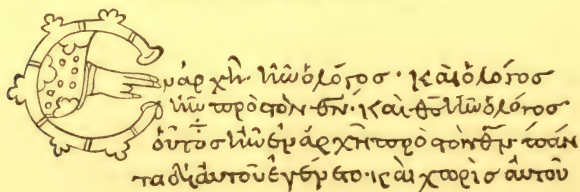 Ἐν ἀρχῆ ἦν ὁ λόγος · καὶ ὁ λόγος
ἦν πρὸς τὸν θν · καὶ θς ἦν ὁ λόγος
οὗτος ἦν ἐν ἀρχῆ πρὸς τὸν θν · πάν
τα δι αὐτοῦ ἐγένετο · καὶ χωρὶς αὐτοῦ